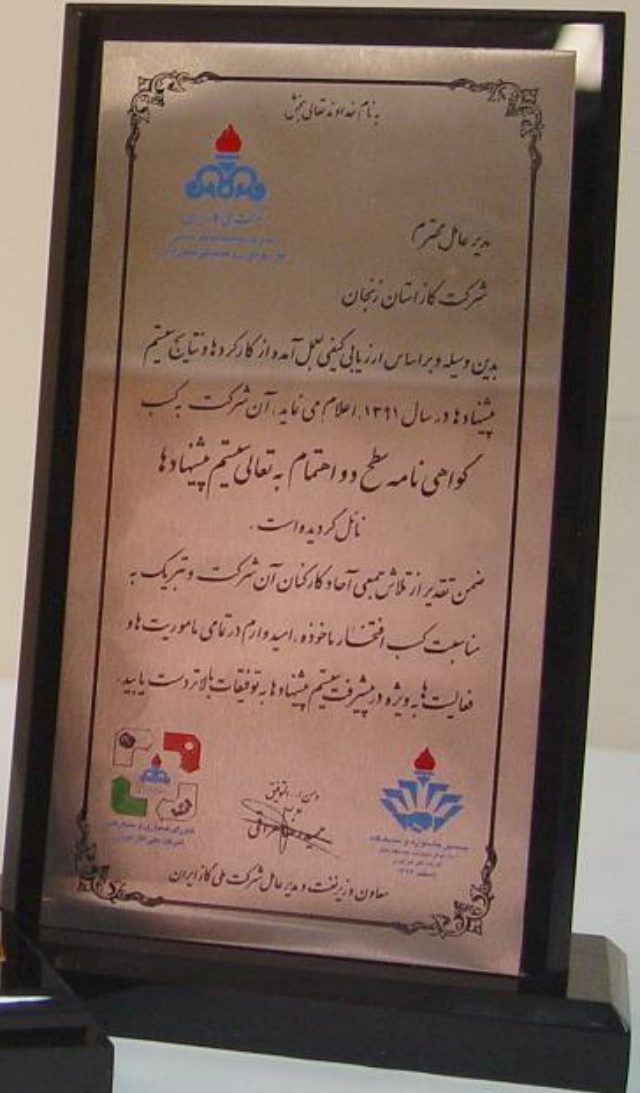 به نام خداوند تعالی بخش
مدیر عامل محترم
شرکت گاز استان زنجان
بدین وسیله و براساس ارزیابی کیفی بعمل آمده از کارکردها و نتایج سیستم
پیشنهادها در سال ۱۳۹۱، اعلام می نماید، آن شرکت به کسب
گواهی نامه سطح دو اهتمام به تعالی سیستم پیشنهادها
نائل گردیده است.
ضمن تقدیر از تلاش جمعی آحاد کارکنان آن شرکت و تبریک به
مناسبت کسب افتخار ماخوذه، امیدوارم در تمامی ماموریت ها و
فعالیت ها به ویژه در پیشرفت سیستم پیشنهادها به توفیقات بالاتر دست یابید.
ومن ا... التوفیق
معاون وزیر نفت و مدیر عامل شرکت ملی گاز ایران